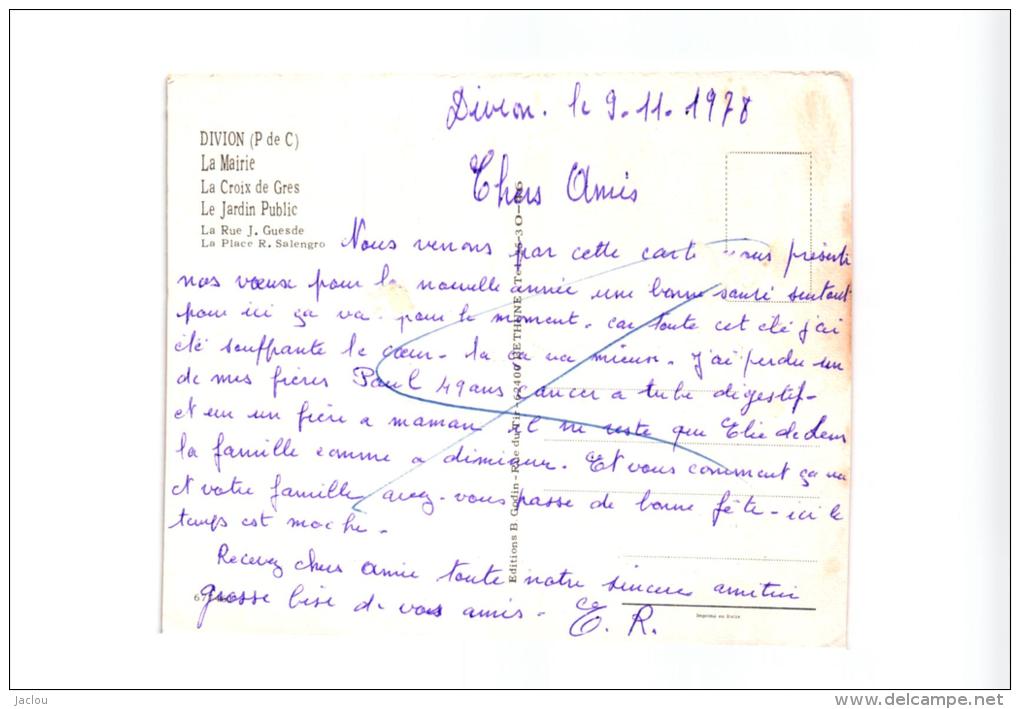 Divion. le 9.11.1978
DIVION (P de C)
La Mairie
La Croix de Gres
Le Jardin Public
La Rue J. Guesde
La Place R. Salengro
Chers Amis
Nous venons par cette carte vous présente
nos vœux pour la nouvelle année une bonne santé surtout
pour ici ça va. pour le moment. car toute cet été j'ai
été souffrante le cœur. la ça va mieux. j'ai perdu un
de mes frères Paul 49 ans cancer a tube digestif-
et un frère a maman il me reste que Elie de Lens
la famille comme a diminuer. Et vous comment ça va
et votre famille avez-vous passe de bonne fête - ici le
temps est moche-
Recevez chers amie toute notre sincère amitié
grosse bise de vos amis-
E. R.
Editions B. Godin - Rue du Tir - 62400 BETHUNE
Imprimé en Italie
jaclou
http://www.delcampe.net